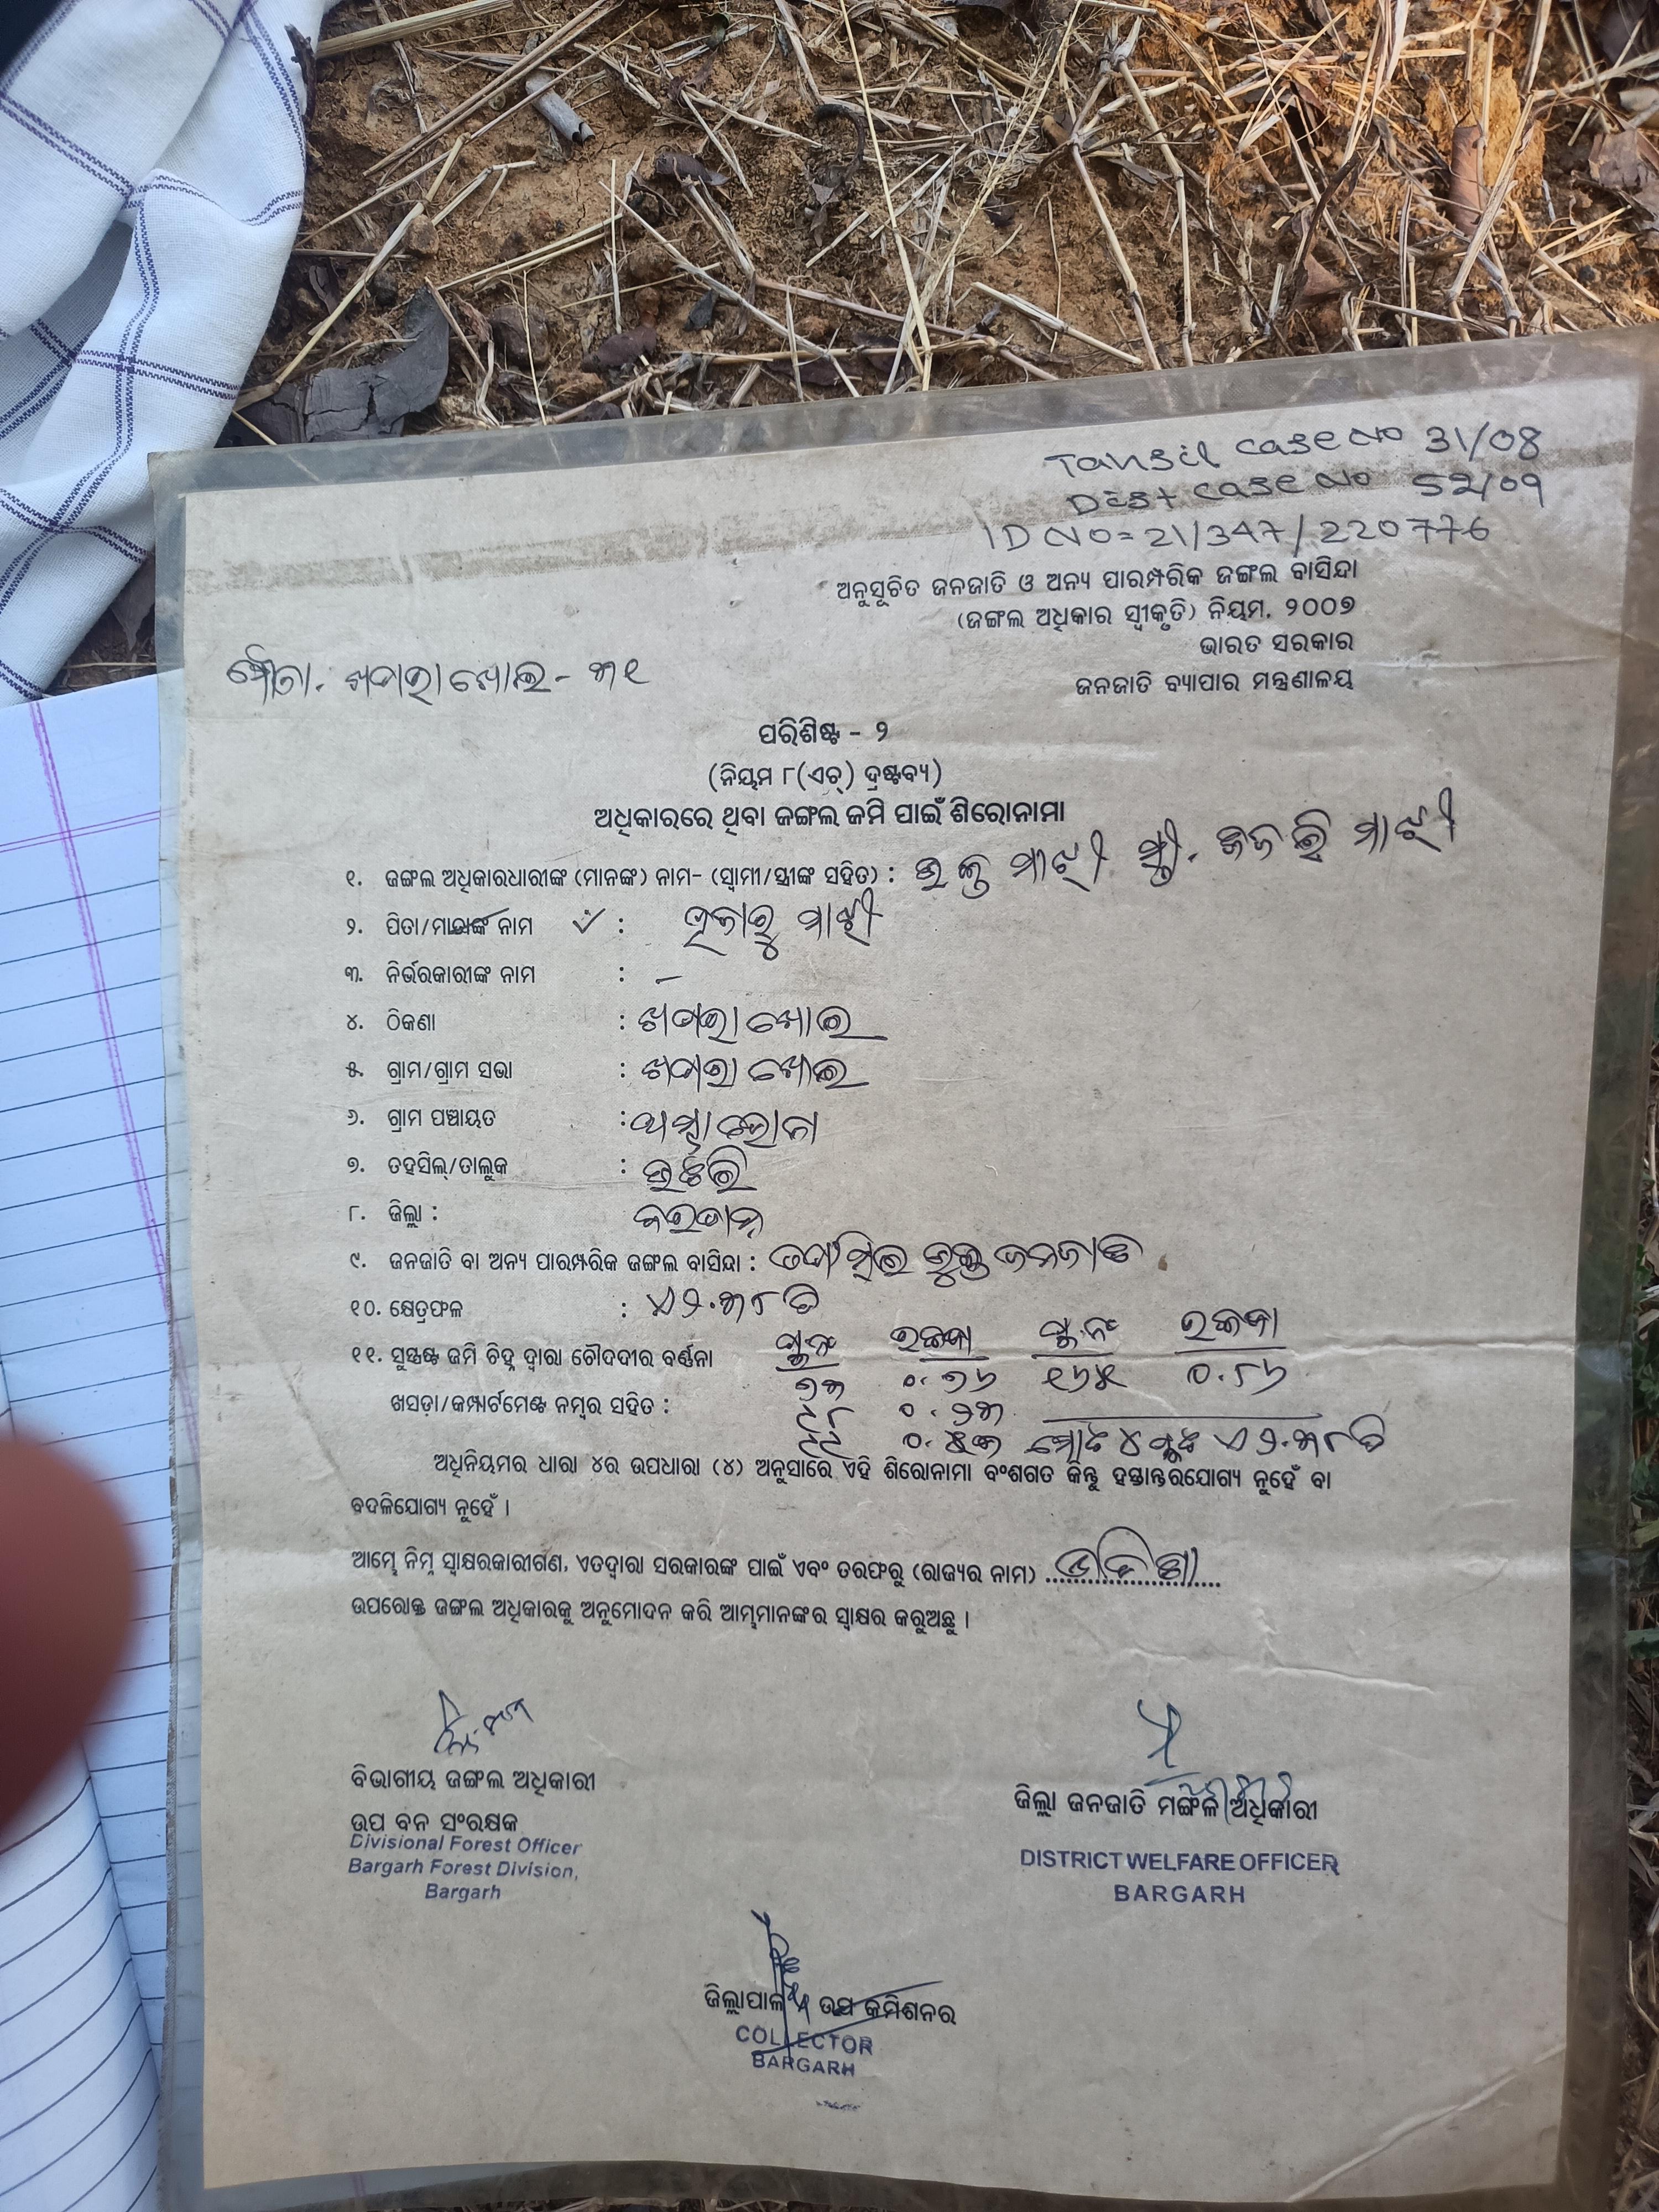 Tahsil case No 31/08
Dist case No 52/09
ID NO = 21/347/220776
ଅନୁସୂଚିତ ଜନଜାତି ଓ ଅନ୍ୟ ପାରମ୍ପରିକ ଜଙ୍ଗଲ ବାସିନ୍ଦା
(ଜଙ୍ଗଲ ଅଧିକାର ସ୍ୱୀକୃତି) ନିୟମ, ୨୦୦୭
ଭାରତ ସରକାର
ଜନଜାତି ବ୍ୟାପାର ମନ୍ତ୍ରଣାଳୟ
ମୌଜା. ଖପରାଖୋଲ - ୩୧
ପରିଶିଷ୍ଟ - ୨
(ନିୟମ ୮(ଏଚ୍) ଦ୍ରଷ୍ଟବ୍ୟ)
ଅଧିକାରରେ ଥିବା ଜଙ୍ଗଲ ଜମି ପାଇଁ ଶିରୋନାମା
୧. ଜଙ୍ଗଲ ଅଧିକାରଧାରୀଙ୍କ (ମାନଙ୍କ) ନାମ- (ସ୍ୱାମୀ/ସ୍ତ୍ରୀଙ୍କ ସହିତ) : ମାଝୀ ସ୍ତ୍ରୀ. ମାଝୀ
୨. ପିତା/ମାତାଙ୍କ ନାମ : ମାଝୀ
୩. ନିର୍ଭରକାରୀଙ୍କ ନାମ : -
୪. ଠିକଣା : ଖପରାଖୋଲ
୫. ଗ୍ରାମ/ଗ୍ରାମ ସଭା : ଖପରାଖୋଲ
୬. ଗ୍ରାମ ପଞ୍ଚାୟତ :
୭. ତହସିଲ୍/ତାଲୁକ : ଭଟଲି
୮. ଜିଲ୍ଲା : ବରଗଡ଼
୯. ଜନଜାତି ବା ଅନ୍ୟ ପାରମ୍ପରିକ ଜଙ୍ଗଲ ବାସିନ୍ଦା : ତପସିଲ ଭୁକ୍ତ ଜନଜାତି
୧୦. କ୍ଷେତ୍ରଫଳ : ଏ୨.୩୮ ଡି
୧୧. ସୁସ୍ପଷ୍ଟ ଜମି ଚିହ୍ନ ଦ୍ୱାରା ଚୌଦଦୀର ବର୍ଣ୍ଣନା ପ୍ଲଟ ନଂ ରକବା ପ୍ଲଟ ନଂ ରକବା
୭୩ ୦.୭୬ ୧୬୪ ୦.୮୬
ଖସଡ଼ା/କମ୍ପାର୍ଟମେଣ୍ଟ ନମ୍ବର ସହିତ : ୦.୨୩
୦.୫୩ ମୋଟ ୪ ପ୍ଲଟ ଏ୨.୩୮ଡି
ଅଧିନିୟମର ଧାରା ୪ର ଉପଧାରା (୪) ଅନୁସାରେ ଏହି ଶିରୋନାମା ବଂଶଗତ କିନ୍ତୁ ହସ୍ତାନ୍ତରଯୋଗ୍ୟ ନୁହେଁ ବା
ବଦଳିଯୋଗ୍ୟ ନୁହେଁ ।
ଆମ୍ଭେ ନିମ୍ନ ସ୍ୱାକ୍ଷରକାରୀଗଣ, ଏତଦ୍ୱାରା ସରକାରଙ୍କ ପାଇଁ ଏବଂ ତରଫରୁ (ରାଜ୍ୟର ନାମ) ଓଡ଼ିଶା
ଉପରୋକ୍ତ ଜଙ୍ଗଲ ଅଧିକାରକୁ ଅନୁମୋଦନ କରି ଆମ୍ଭମାନଙ୍କର ସ୍ୱାକ୍ଷର କରୁଅଛୁ ।
ବିଭାଗୀୟ ଜଙ୍ଗଲ ଅଧିକାରୀ
ଉପ ବନ ସଂରକ୍ଷକ
Divisional Forest Officer
Bargarh Forest Division,
Bargarh
ଜିଲ୍ଲା ଜନଜାତି ମଙ୍ଗଳ ଅଧିକାରୀ
DISTRICT WELFARE OFFICER
BARGARH
ଜିଲ୍ଲାପାଳ ଉପ କମିଶନର
COLLECTOR
BARGARH